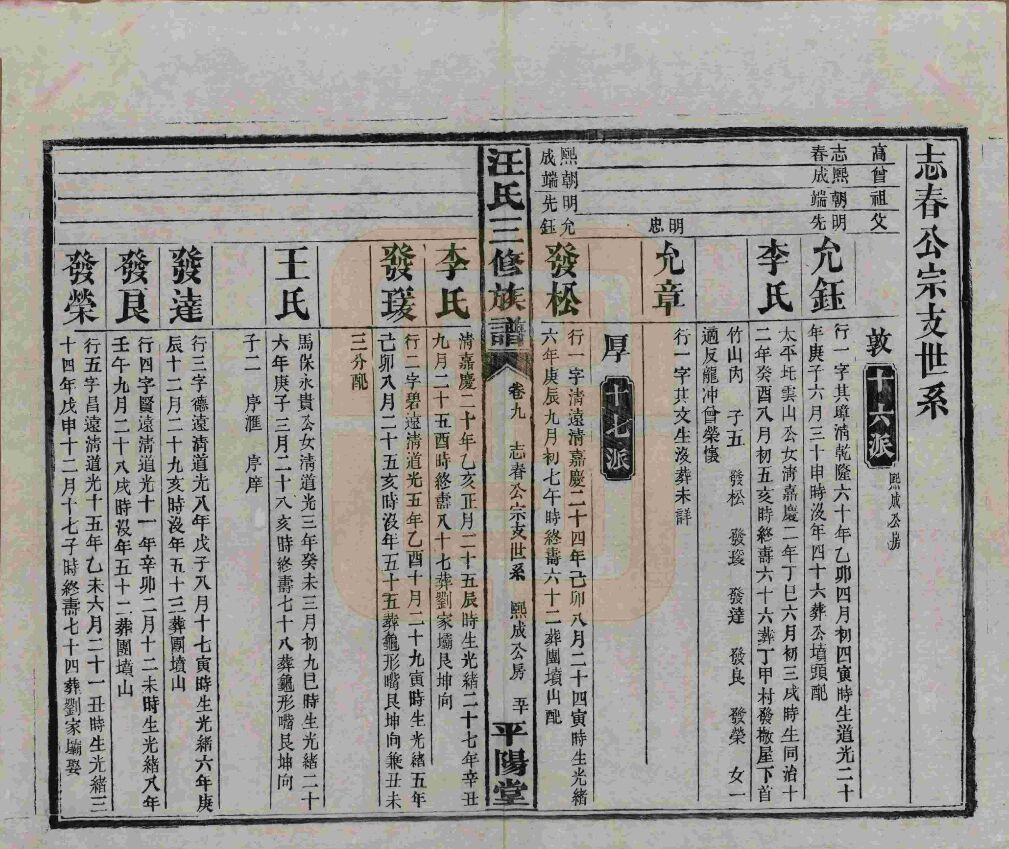 志春公宗支世系
高曾祖父
志熙朝明
春成端先
敦 十六派 熙成公房
允鈺
行一字其璋清乾隆六十年乙卯四月初四寅時生道光二十
年庚子六月三十申時沒年四十六葬公墳頭配
李氏
太平圫雲山公女清嘉慶二年丁巳六月初三戌時生同治十
二年癸酉八月初五亥時終壽六十六葬丁甲村發檄屋下首
竹山內 子五 發松 發瑗 發達 發良 發榮 女一
適反龍冲曾榮懷
明忠
允章
行一字其文生沒葬未詳
厚 十七派
熙朝明允
成端先鈺
發松
行一字清遠清嘉慶二十四年己卯八月二十四寅時生光緒
六年庚辰九月初七午時終壽六十二葬團墳山配
汪氏三修族譜
卷九 志春公宗支世系 熙成公房
平陽堂
李氏
清嘉慶二十年乙亥正月二十五辰時生光緒二十七年辛丑
九月二十五酉時終壽八十七葬劉家壩艮坤向
發瑗
行二字碧遠清道光五年乙酉十月二十九寅時生光緒五年
己卯八月二十五亥時沒年五十五葬龜形嘴艮坤向兼丑未
三分配
王氏
馬保永貴公女清道光三年癸未三月初九巳時生光緒二十
六年庚子三月二十八亥時終壽七十八葬龜形嘴艮坤向
子二 序滙 序庠
發達
行三字德遠清道光八年戊子八月十七寅時生光緒六年庚
辰十二月二十九亥時沒年五十三葬團墳山
發良
行四字賢遠清道光十一年辛卯二月十二未時生光緒八年
壬午九月二十八戌時沒年五十二葬團墳山
發榮
行五字昌遠清道光十五年乙未六月二十一丑時生光緒三
十四年戊申十二月十七子時終壽七十四葬劉家壩娶